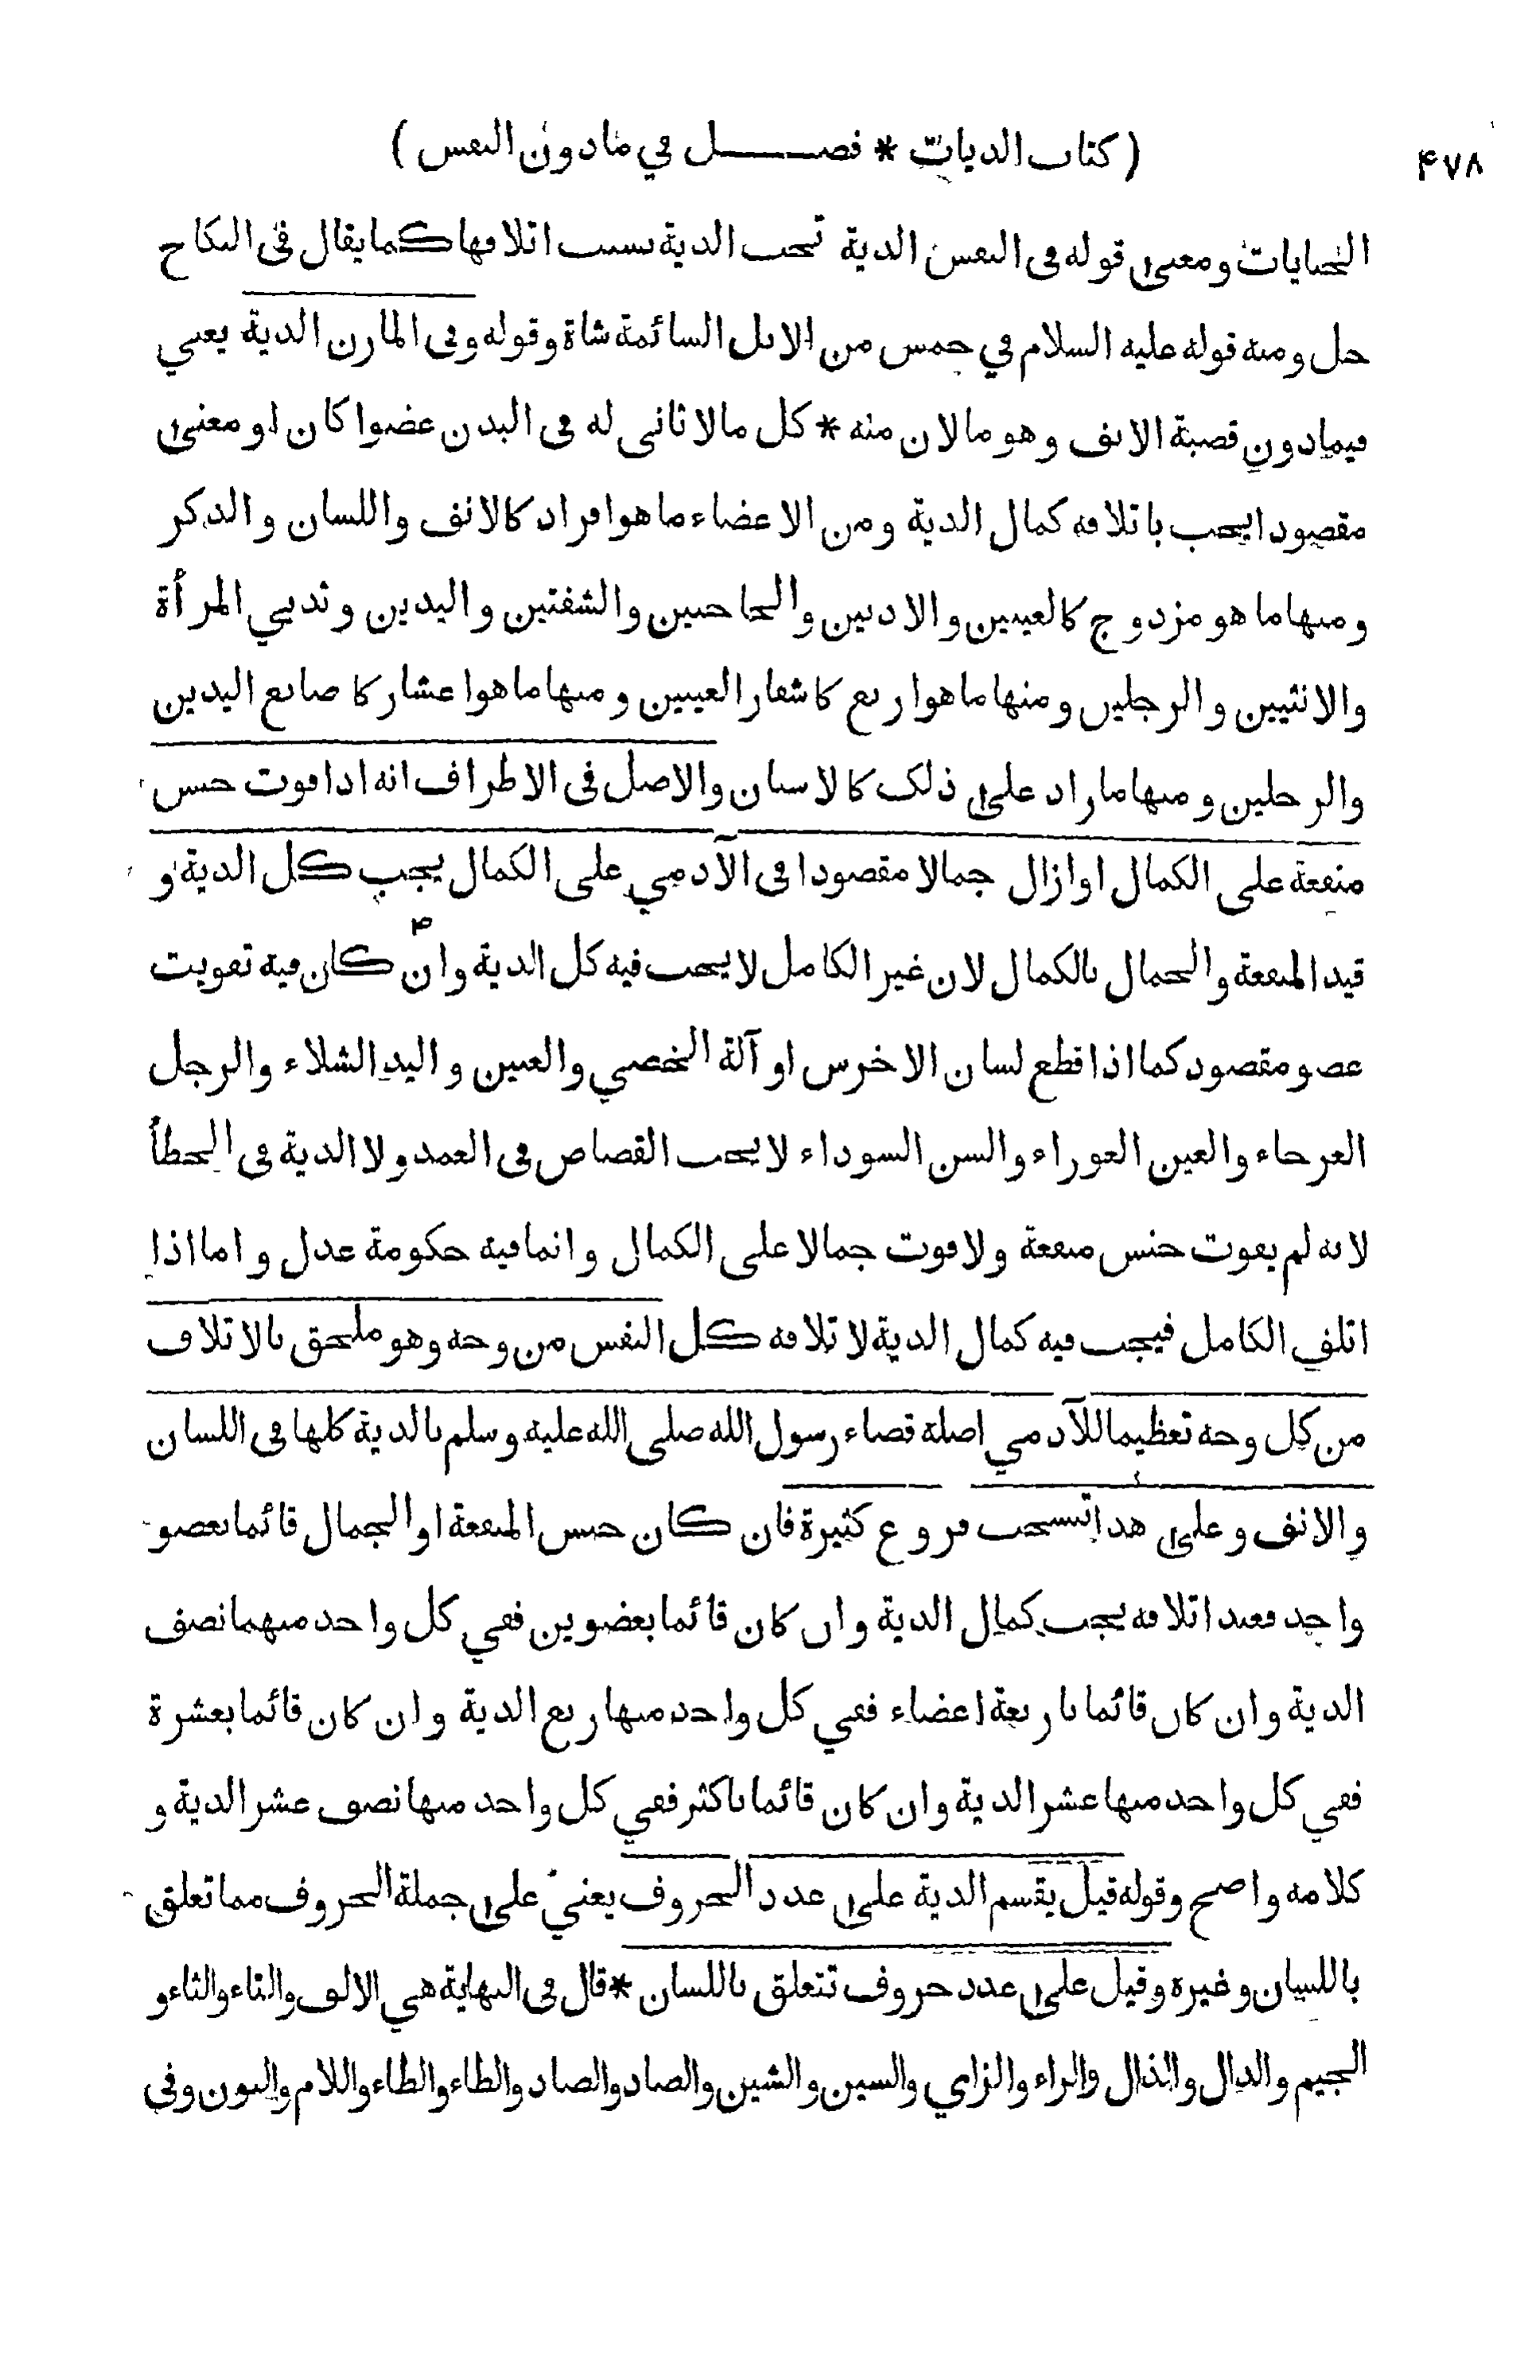 ۴۷۸
( كتاب الديات * فصـــــل في مادون النفس )
الجنايات ومعنى قوله فى النفس الدية تجب الدية بسبب اتلافها كما يقال فى النكاح
حل ومنه قوله عليه السلام في خمس من الابل السائمة شاة وقوله وفى المارن الدية يعني
فيمادون قصبة الانف وهو مالان منه * كل مالا ثانى له فى البدن عضوا كان او معنى
مقصودا يجب باتلافه كمال الدية ومن الاعضاء ماهو افراد كالانف واللسان والذكر
ومنها ما هو مزدوج كالعينين والاذنين والحاجبين والشفتين واليدين وثديي المرأة
والانثيين والرجلين ومنها ماهو اربع كاشفار العينين ومنها ماهو اعشار كاصابع اليدين
والرجلين ومنها مازاد على ذلك كالاسنان والاصل فى الاطراف انه اذا فوت جنس
منفعة على الكمال اوازال جمالا مقصودا فى الآدمي على الكمال يجب كل الدية و
قيد المنفعة والجمال بالكمال لان غير الكامل لا يجب فيه كل الدية وان كان فيه تفويت
عضو مقصود كما اذا قطع لسان الاخرس او آلة الخصي والعنين واليد الشلاء والرجل
العرجاء والعين العوراء والسن السوداء لا يجب القصاص فى العمد ولا الدية فى الخطأ
لانه لم يفوت جنس منفعة ولا فوت جمالا على الكمال وانما فيه حكومة عدل واما اذا
اتلف الكامل فيجب فيه كمال الدية لاتلافه كل النفس من وجه وهو ملحق بالاتلاف
من كل وجه تعظيما للآدمي اصله قضاء رسول الله صلى الله عليه وسلم بالدية كلها فى اللسان
والانف وعلى هذا تنسحب فروع كثيرة فان كان جنس المنفعة او الجمال قائما بعضو
واحد فعند اتلافه يجب كمال الدية وان كان قائما بعضوين ففي كل واحد منهما نصف
الدية وان كان قائما باربعة اعضاء ففي كل واحد منها ربع الدية وان كان قائما بعشرة
ففي كل واحد منها عشر الدية وان كان قائما باكثر ففي كل واحد منها نصف عشر الدية و
كلامه واضح وقوله قيل يقسم الدية على عدد الحروف يعني على جملة الحروف مما تعلق
باللسان وغيره وقيل على عدد حروف تتعلق باللسان * قال فى النهاية هي الالف والتاء والثاء و
الجيم والدال والذال والراء والزاي والسين والشين والصاد والضاد والطاء والظاء واللام والنون وفي